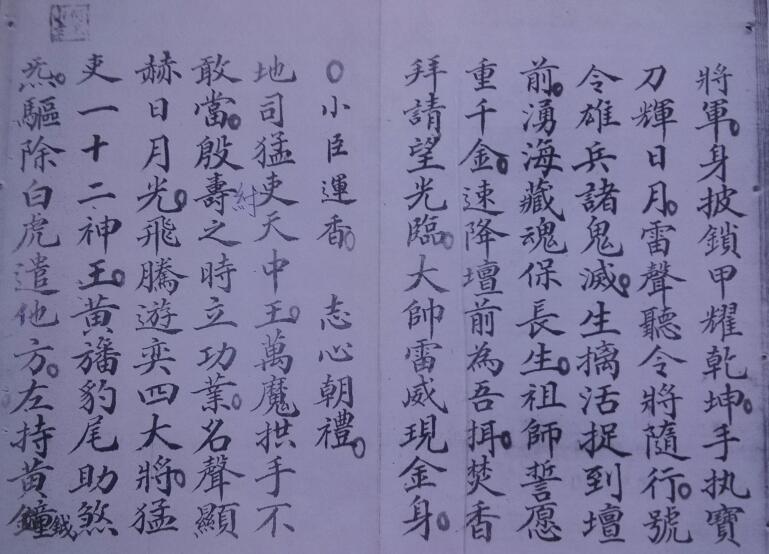 將軍。身披鎖甲耀乾坤。手执寶
刀輝日月。雷聲聽令將隨行。號
令雄兵諸鬼滅。生擒活捉到壇
前。湧海藏魂保長生。祖師誓愿
重千金。速降壇前為吾揖。焚香
拜請望光臨。大帥雷威現金身。
○小臣運香。 志心朝禮。
地司猛吏天中王。萬魔拱手不
敢當。殷壽之時立功業。名聲顯
紂
赫日月光。飛騰遊奕四大將。猛
吏一十二神王。黃旛豹尾助煞
炁。驅除白虎遣他方。左持黃鐘
鉞